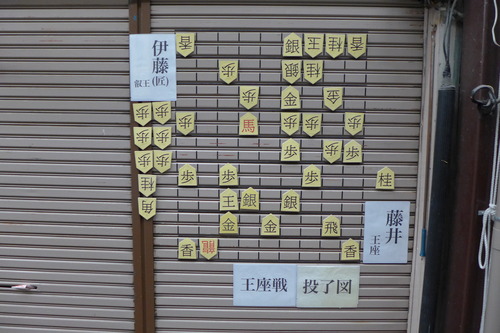 伊藤
叡王(匠)
香銀玉桂香
歩銀桂
歩金金
歩馬歩歩歩
歩歩歩
歩歩歩
王銀銀
金金飛
香龍香
歩歩
歩歩
歩歩
桂
角
桂
藤井
王座
王座戦
投了図